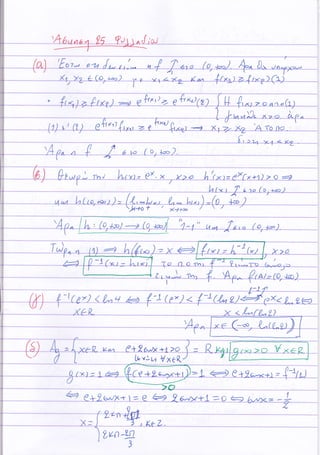 Άσκηση 25 Φυλλαδίου
(α) Έστω ότι δεν είναι η f ↑ στο (0,+∞). Άρα θα υπάρχουν
x₁, x₂ ∈ (0,+∞) με x₁<x₂ και f(x₁)≥f(x₂) (1)
• f(x₁)≥f(x₂) ⟹ e^f(x₁) ≥ e^f(x₂) (2) Η f(x)>0 από (1)
για κάθε x>0 άρα
(1)·(2) e^f(x₁) f(x₁) ≥ e^f(x₂) f(x₂) ⟹ x₁ ≥ x₂ Άτοπο
διότι x₁<x₂
Άρα η f ↑ στο (0,+∞).
(β) Θεωρώ την h(x)=eˣ·x, x>0 h'(x)=eˣ(x+1)>0 ⟹
h(x) ↑ στο (0,+∞)
και h((0,+∞))=(lim h(x), lim h(x))=(0,+∞)
x→0⁺ x→+∞
Άρα h:(0,+∞)→(0,+∞) "1-1" και ↑ στο (0,+∞).
Τώρα η (1) ⟹ h(f(x))=x ⟺ f(x)=h⁻¹(x), x>0
⟺ f⁻¹(x)=h(x) Το π.ο. της f⁻¹ είναι το σύνολο
τιμών της f. Άρα f(A)=(0,+∞)
(γ) f⁻¹(eˣ)<ln4 ⟺ f⁻¹(eˣ)<f⁻¹(ln2) ⟺ eˣ<ln2 ⟺
x∈R x<ln(ln2)
Άρα x∈(-∞, ln(ln2))
(δ) A_g={x∈R και e+2συνx+1>0} = R και g(x)>0 ∀x∈R
g(x)=1 ⟺ f(e+2συνx+1)=1 ⟺ e+2συνx+1=f⁻¹(1)
>0
⟺ e+2συνx+1=e ⟺ 2συνx+1=0 ⟺ συνx=-1/2
x={2κπ+2π/3
, κ∈Z.
2κπ-2π/3